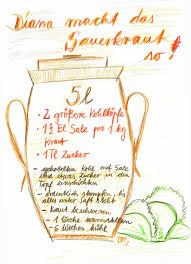 Diana macht das
Sauerkraut
so!
5l
• 2 größere Kohlköpfe
• 1½ El Salz pro 1 kg
Kraut
• 1 Tl Zucker
- gehobelten Kohl mit Salz
und etwas Zucker in den
Topf einschichten
- ordentlich stampfen, bis
alles unter Saft steht
- Kraut beschweren
- 1 Woche warmstellen
- 6 Wochen kühl